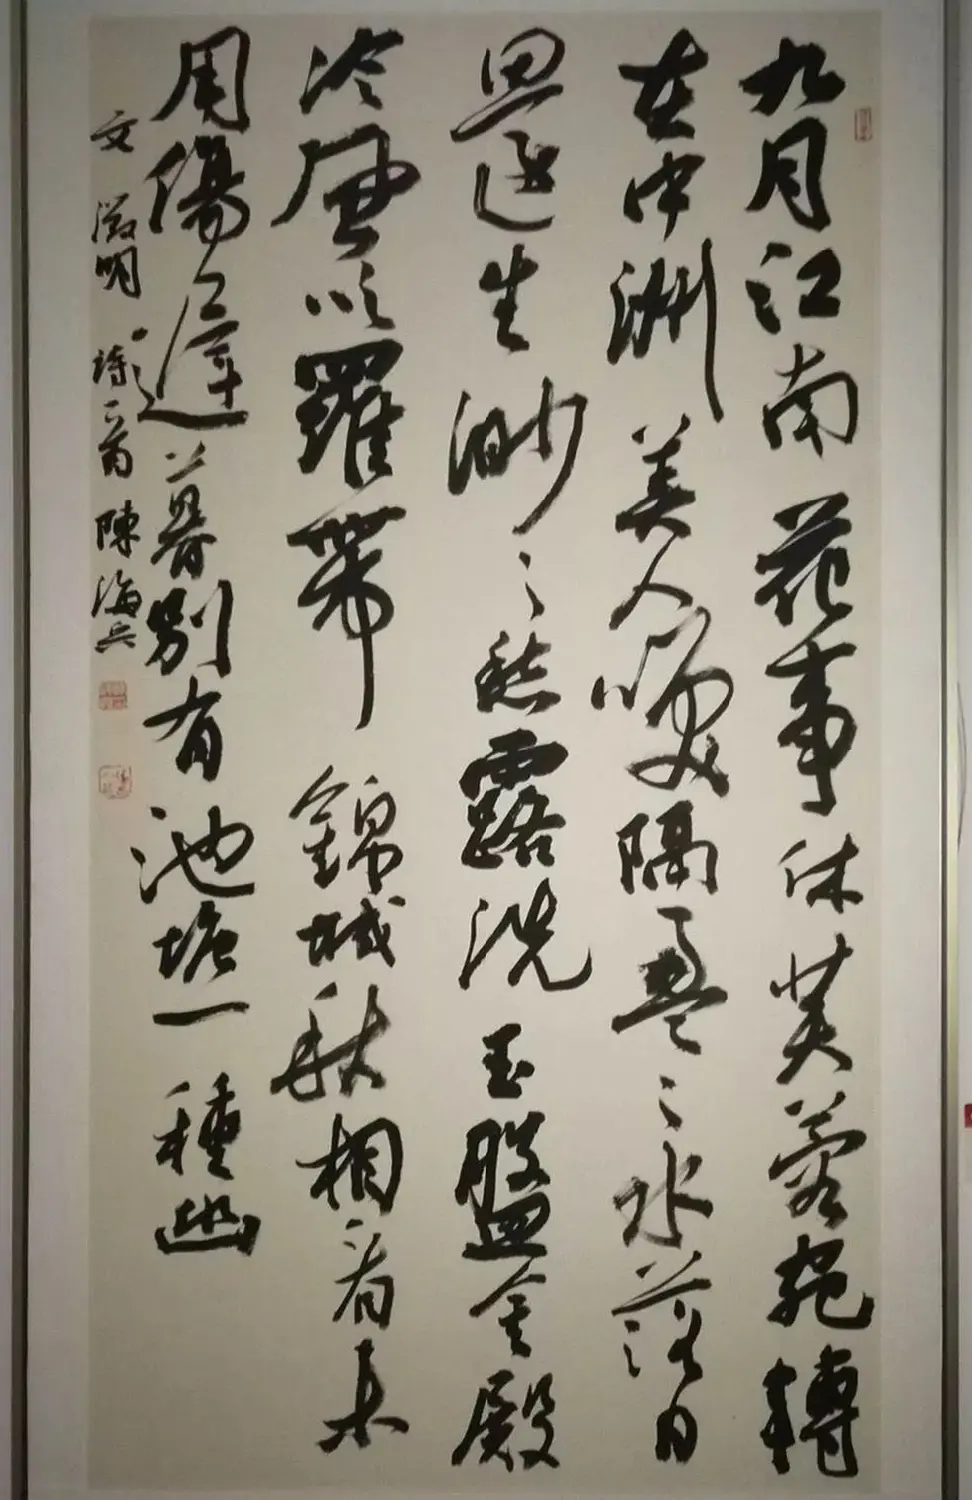 九月江南花事休芙蓉宛轉
在中洲美人咲隔盈〻水落日
思還生渺〻愁露洗玉盤金殿
冷風吹羅帶錦城秋相看未
用傷遲暮別有池塘一種幽
文徵明詩一首陳海兵